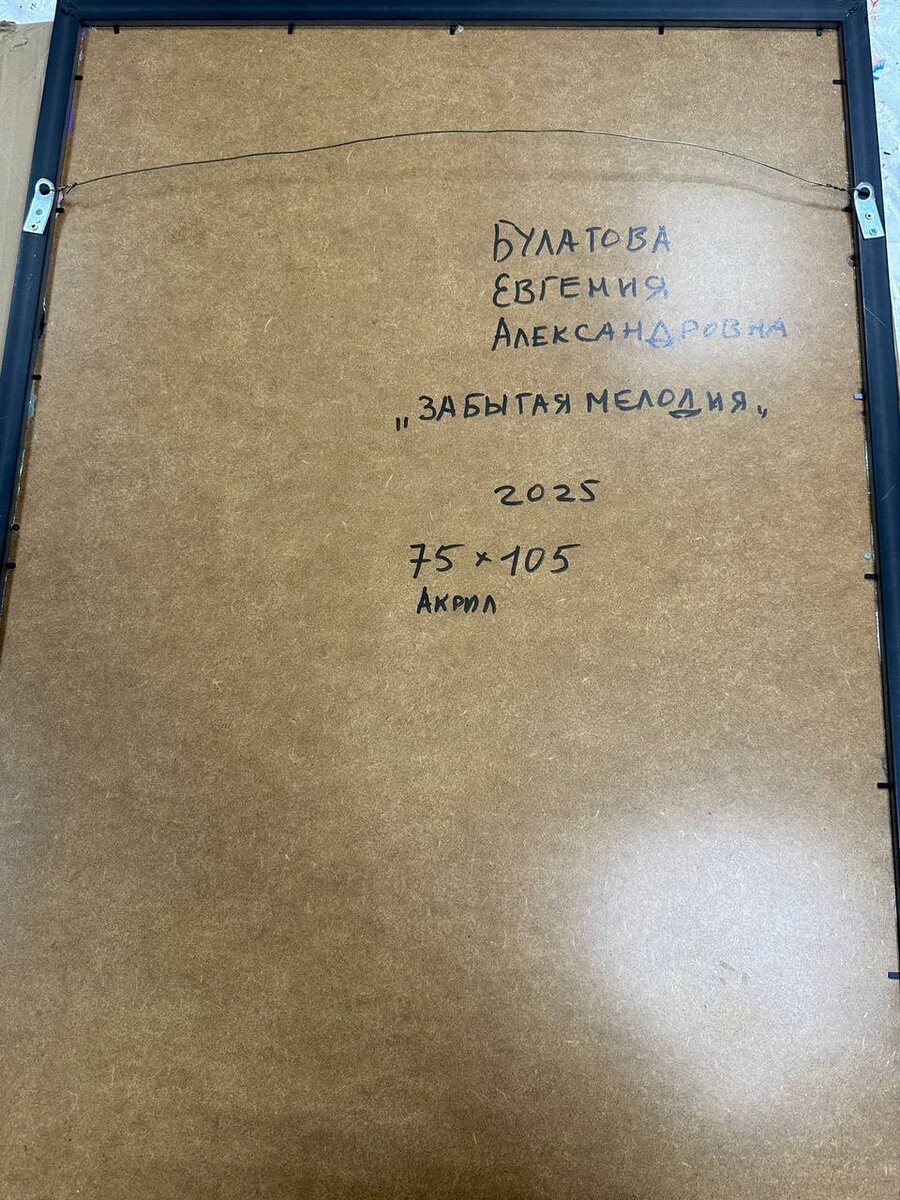 БУЛАТОВА
ЕВГЕНИЯ
АЛЕКСАНДРОВНА
„ЗАБЫТАЯ МЕЛОДИЯ„
2025
75×105
АКРИЛ